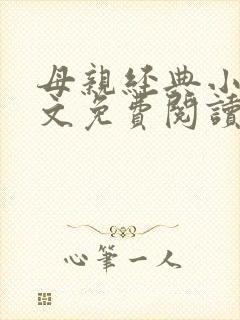 母親經典小
文免費閱讀
心筆一人